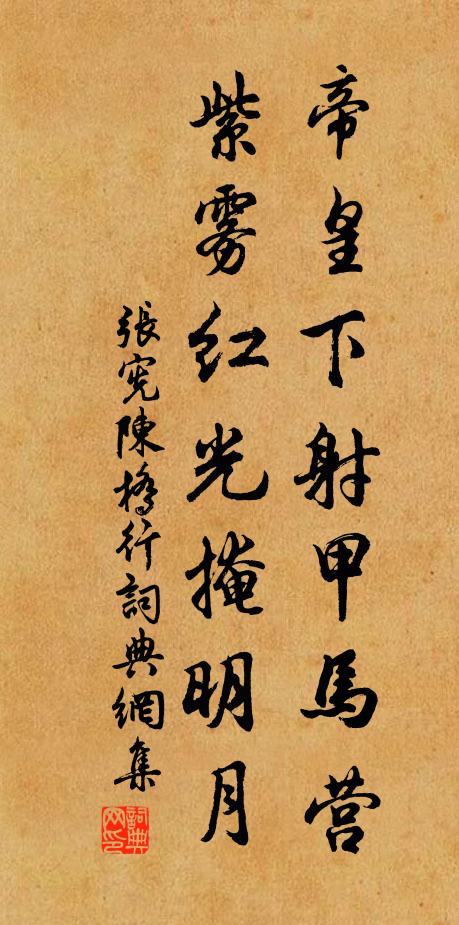 帝皇下射甲馬营
紫雾红光掩明月
張宪陳橋行詞典網集
詞典网印